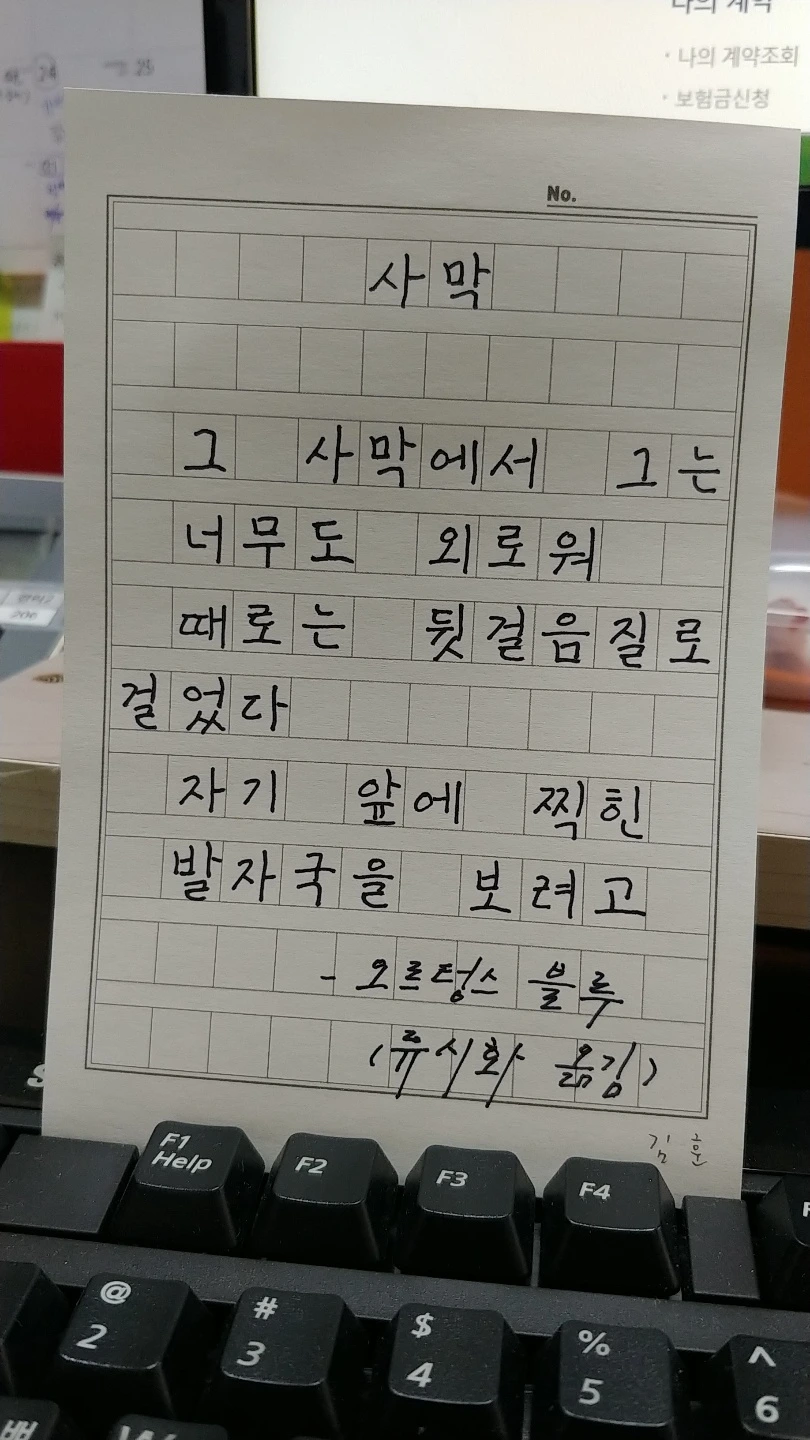 나의 계약
· 나의 계약조회
· 보험금신청
24
25
No.
사막
그 사막에서 그는
너무도 외로워
때로는 뒷걸음질로
걸었다
자기 앞에 찍힌
발자국을 보려고
- 오르텅스 블루
(류시화 옮김)
김훈
206
F1
Help
F2
F3
F4
@
2
#
3
$
4
%
5
^
6
ㅃ
W